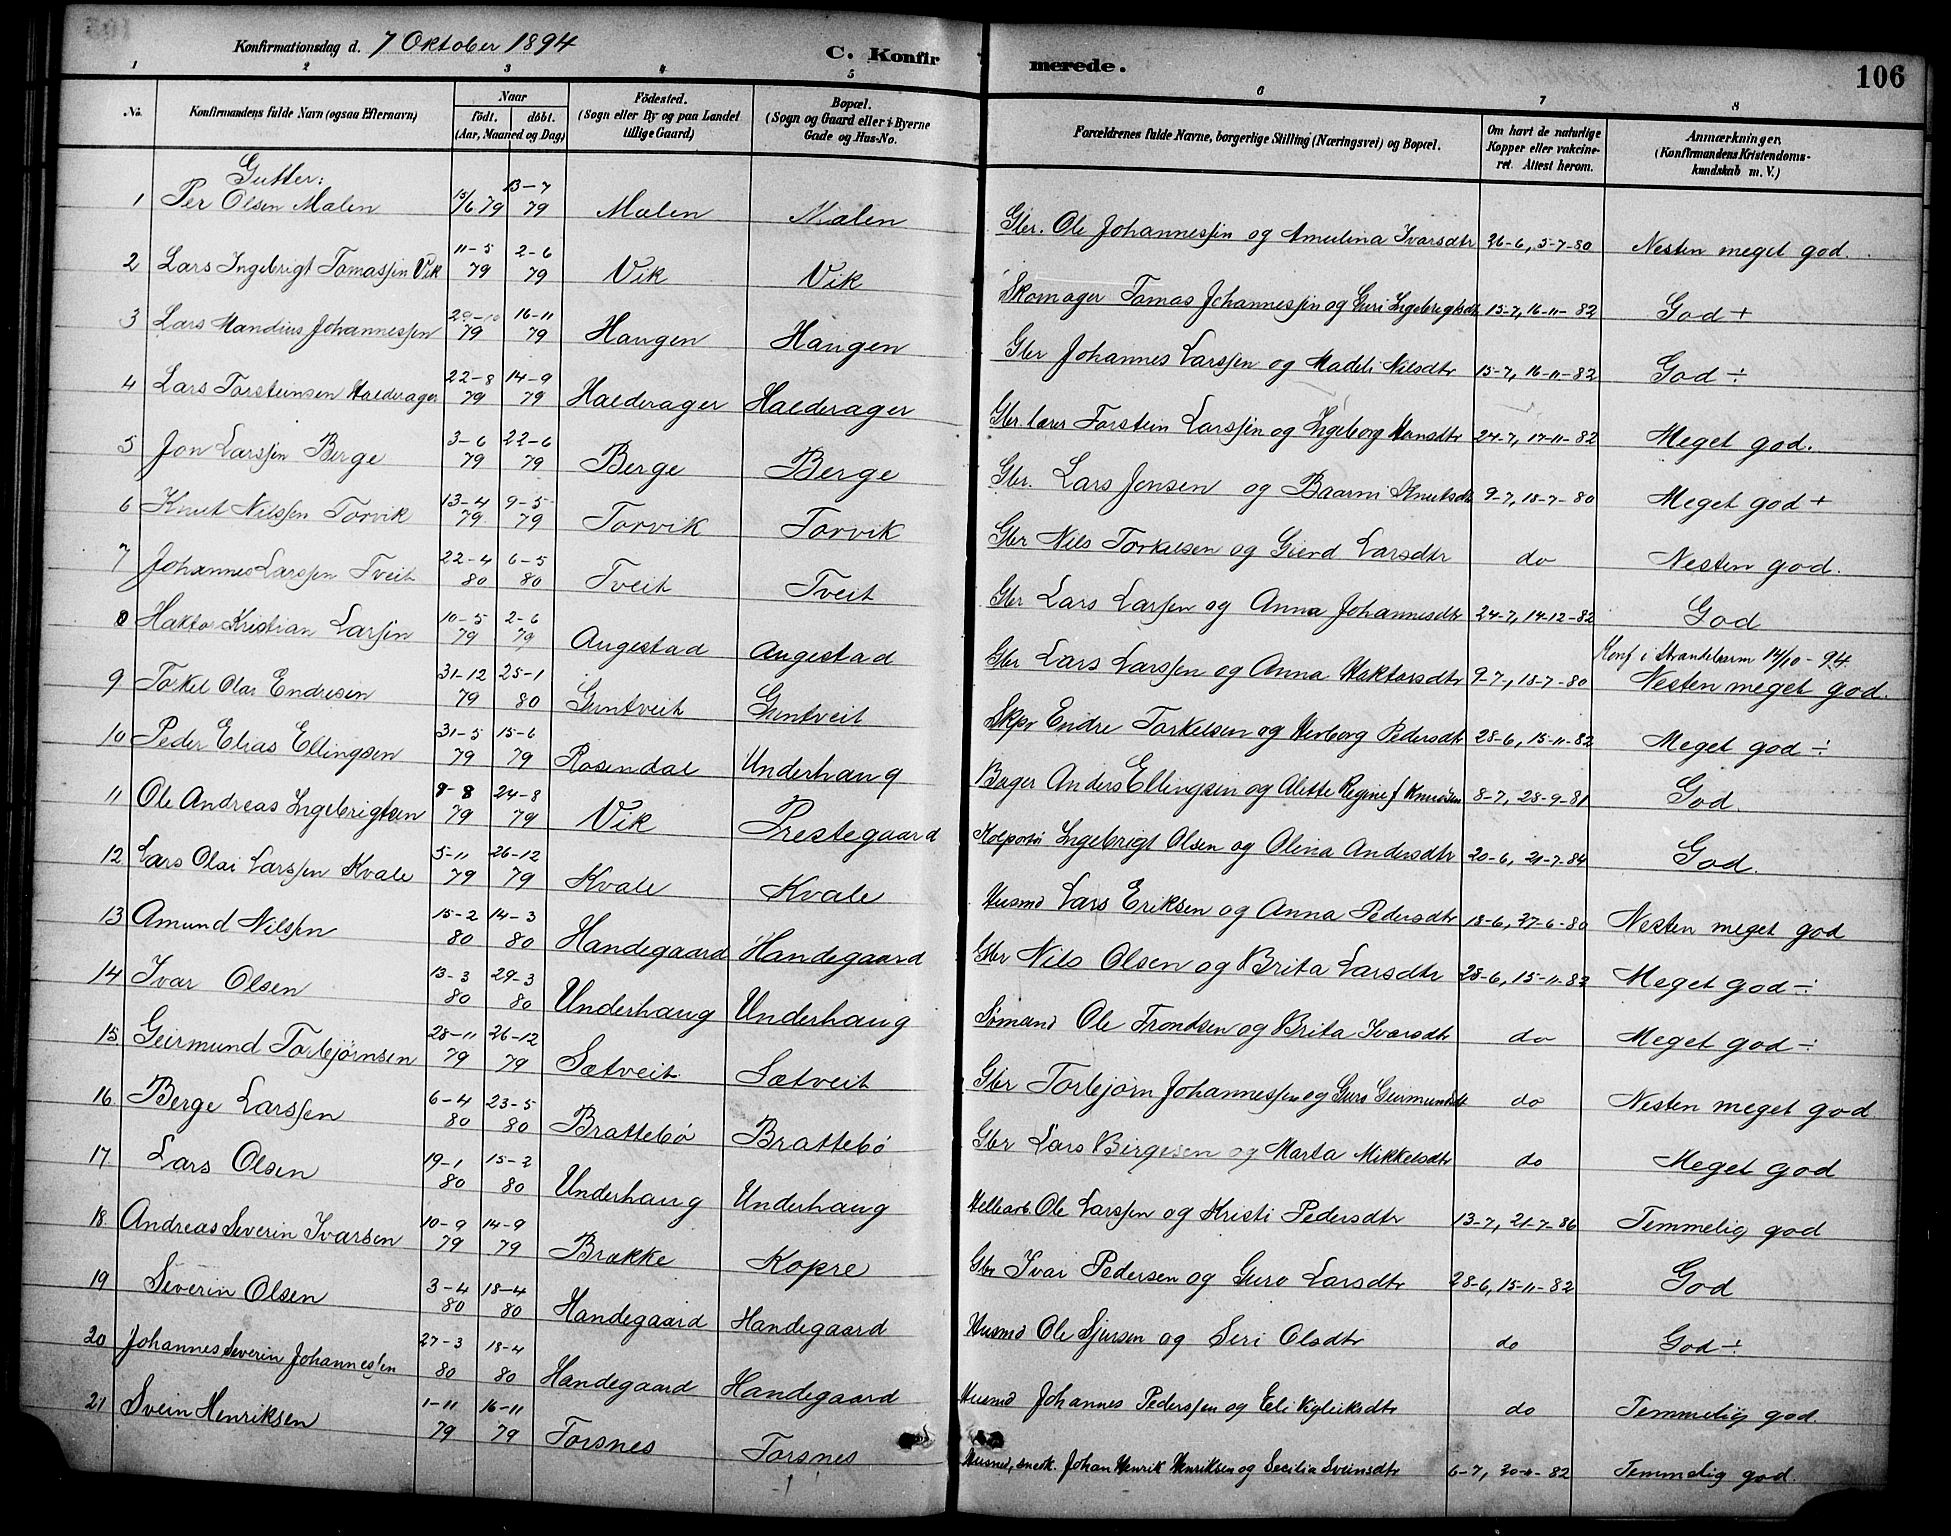 Konfirmationsdag d. 7 Oktober 1894 C. Konfirmerede. 106
1 2 3 4 5 6 7 8
No. Konfirmandens fulde Navn (ogsaa Efternavn) Naar født. døbt. (Aar, Maaned og Dag) Födested. (Sogn eller By og paa Landet tillige Gaard) Bopæl. (Sogn og Gaard eller i Byerne Gade og Hus-No. Forældrenes fulde Navne, borgerlige Stilling (Næringsvei) og Bopæl. Om havt de naturlige Kopper eller vakcineret. Attest herom. Anmærkninger. (Konfirmandens Kristendomskundskab m. V.)
Gutter:
1 Per Olsen Malen 15/6 79 13-7 79 Malen Malen Gbr. Ole Johannessen og Amelina Ivarsdtr 26-6, 3-7-80 Nesten meget god.
2 Lars Ingebrigt Tomassen Vik 11-5 79 2-6 79 Vik Vik Skomager Tomas Johannessen og Guri Ingebrigtsdt 15-7, 16-11-82 God +
3 Lars Mandius Johannessen 29-10 79 16-11 79 Haugen Haugen Gbr Johannes Larssen og Madeli Nilsdtr 15-7, 16-11-82 God ÷
4 Lars Torsteinsen Halderager 22-8 79 14-9 79 Halderager Halderager Gbr. lærer Torstein Larssen og Ingeborg Hansdtr 24-7, 17-11-82 Meget god.
5 Jon Larssen Berge 3-6 79 22-6 79 Berge Berge Gbr. Lars Jonsen og Baarni Knutsdt 9-7, 18-7-80 Meget god +
6 Knut Nilssen Torvik 13-4 79 9-5 79 Torvik Torvik Gbr Nils Torkelsen og Gurid Larsdtr do Nesten god.
7 Johannes Larssen Tveit 22-4 80 6-5 80 Tveit Tveit Gbr Lars Larsen og Anna Johannesdtr 24-7, 14-12-82 God
8 Haktor Kristian Larsen 10-5 79 2-6 79 Augestad Augestad Gbr Lars Larssen og Anna Haktorsdtr 9-7, 18-7-80 Konf i Strandebarm 14/10-94 Nesten meget god.
9 Torkel Olai Endresen 31-12 79 25-1 80 Guntveit Guntveit Skpr Endre Torkelsen og Herborg Pedersdtr 28-6, 15-11-82 Meget god ÷
10 Peder Elias Ellingsen 31-5 79 15-6 79 Rosendal Underhaug Bager Anders Ellingsen og Alette Regine f Knudsen 8-7, 28-9-81 God.
11 Ole Andreas Ingebrigtsen 8-8 79 24-8 79 Vik Prestegaard Kolportør Ingebrigt Olsen og Olina Andersdtr 20-6, 21-7-84 God.
12 Lars Olai Larssen Kvale 5-11 79 26-12 79 Kvale Kvale Husmd Lars Eriksen og Anna Pedersdtr 18-6, 27-6-80 Nesten meget god
13 Amund Nilssen 15-2 80 14-3 80 Handegaard Handegaard Gbr Nils Olsen og Brita Larsdtr 28-6, 15-11-82 Meget god ÷
14 Ivar Olsen 13-3 80 29-3 80 Underhaug Underhaug Sømand Ole Trondsen og Brita Ivarsdtr do Meget god ÷
15. Geirmund Torbjørnsen 28-11 79 26-12 79 Sætveit Sætveit Gbr Torbjørn Johannessen og Guro Geirmundsdt do Nesten meget god
16. Berge Larssen 6-4 80 23-5 80 Brattebø Brattebø Gbr Lars Birgesen og Marta Mikkelsdtr do Meget god
17. Lars Olsen 19-1 80 15-2 80 Underhaug Underhaug Hellearb. Ole Larssen og Kristi Pedersdtr 13-7, 21-7-86 Temmelig god
18. Andreas Severin Ivarsen 10-9 79 14-9 79 Brække Kopre Gbr Ivar Pedersen og Guro Larsdtr 28-6, 15-11-82 God
19 Severin Olsen 3-4 80 18-4 80 Handegaard Handegaard Husmd Ole Sjursen og Seri Olsdtr do God ÷
20 Johannes Severin Johannessen 27-3 80 18-4 80 Handegaard Handegaard Husmd Johannes Pederssen og Eli do Temmelig god
21 Svein Henriksen 1-11 79 16-11 79 Torsnes Torsnes Husmd, snedk. Johan Henrik Henriksen og Secilia Sveinsdtr 6-7, 82 Temmelig god.